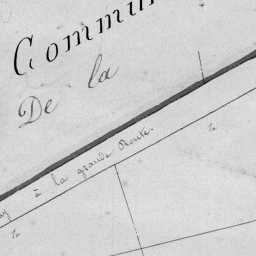 Commun
De la
à la grande Route.